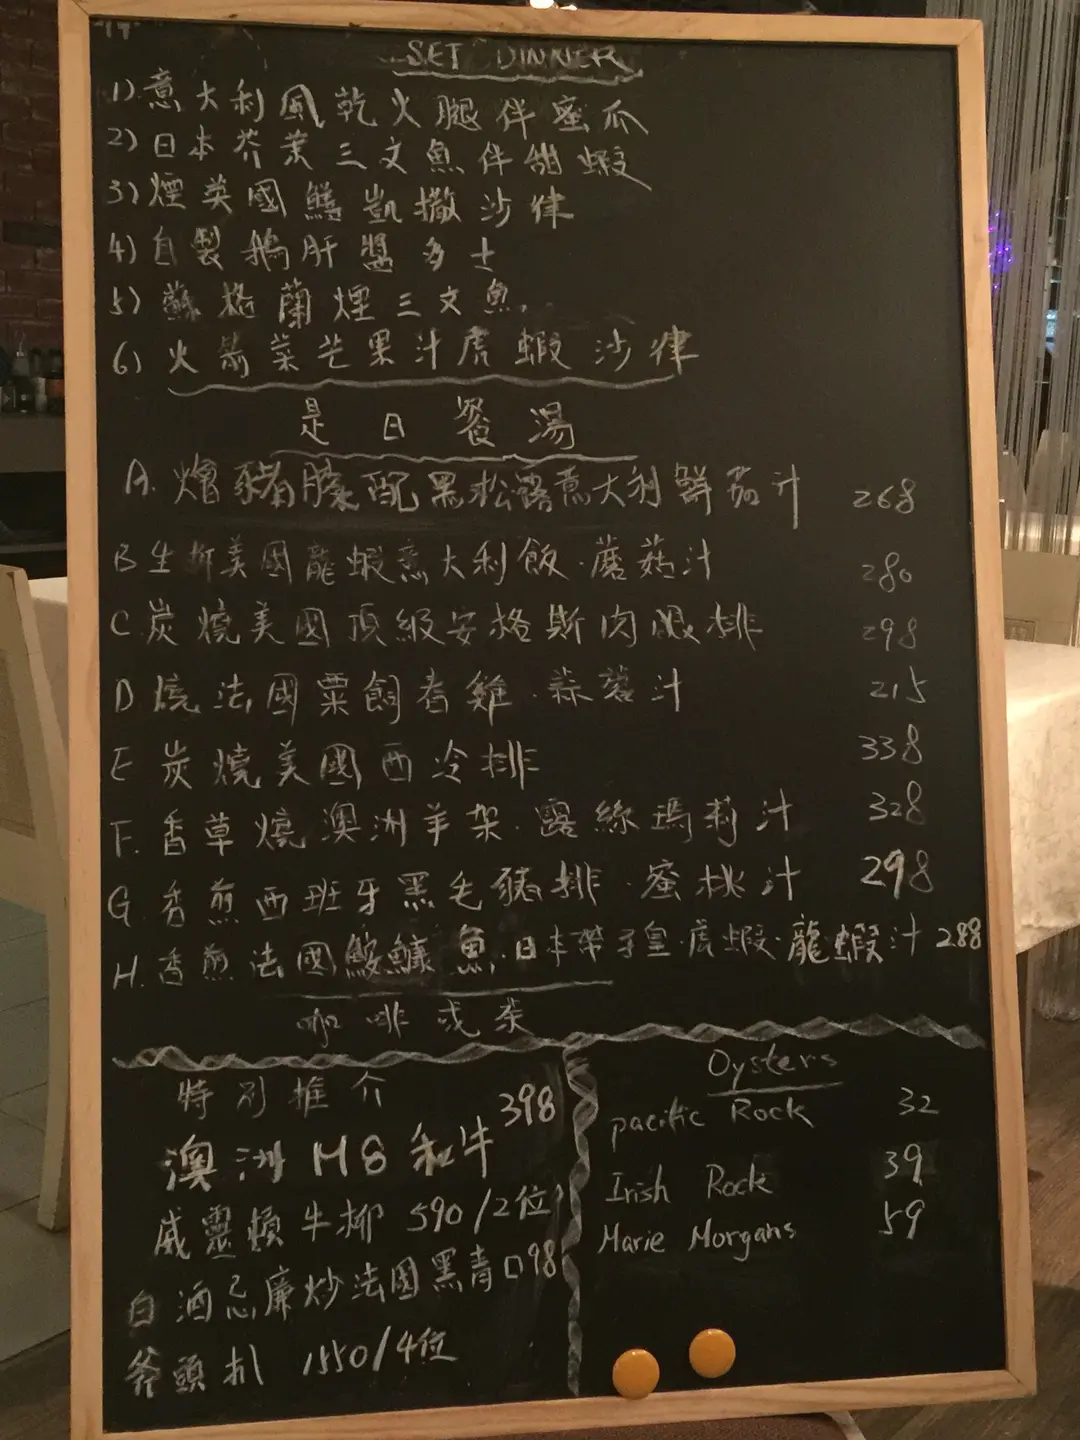 SET DINNER
1) 意大利風乾火腿伴蜜瓜
2) 日本芥末三文魚伴甜蝦
3) 煙英國鱔凱撒沙律
4) 自製鵝肝醬多士
5) 蘇格蘭煙三文魚
6) 火箭菜芒果汁虎蝦沙律
是日餐湯
A. 燴豬膝配黑松露意大利鮮茄汁 268
B 生拆美國龍蝦意大利飯·蘑菇汁 280
C. 炭燒美國頂級安格斯肉眼排 298
D 燒法國粟飼春雞·蒜蓉汁 215
E 炭燒美國西冷排 338
F. 香草燒澳洲羊架·露絲瑪莉汁 328
G. 香煎西班牙黑毛豬排·蜜桃汁 298
H. 香煎法國鮟鱇魚·日本帶子皇·虎蝦·龍蝦汁 288
咖啡或茶
特別推介
澳洲M8和牛 398
威靈頓牛柳 590/2位
白酒忌廉炒法國黑青口 98
斧頭扒 1550/4位
Oysters
pacific Rock 32
Irish Rock 39
Marie Morgans 59